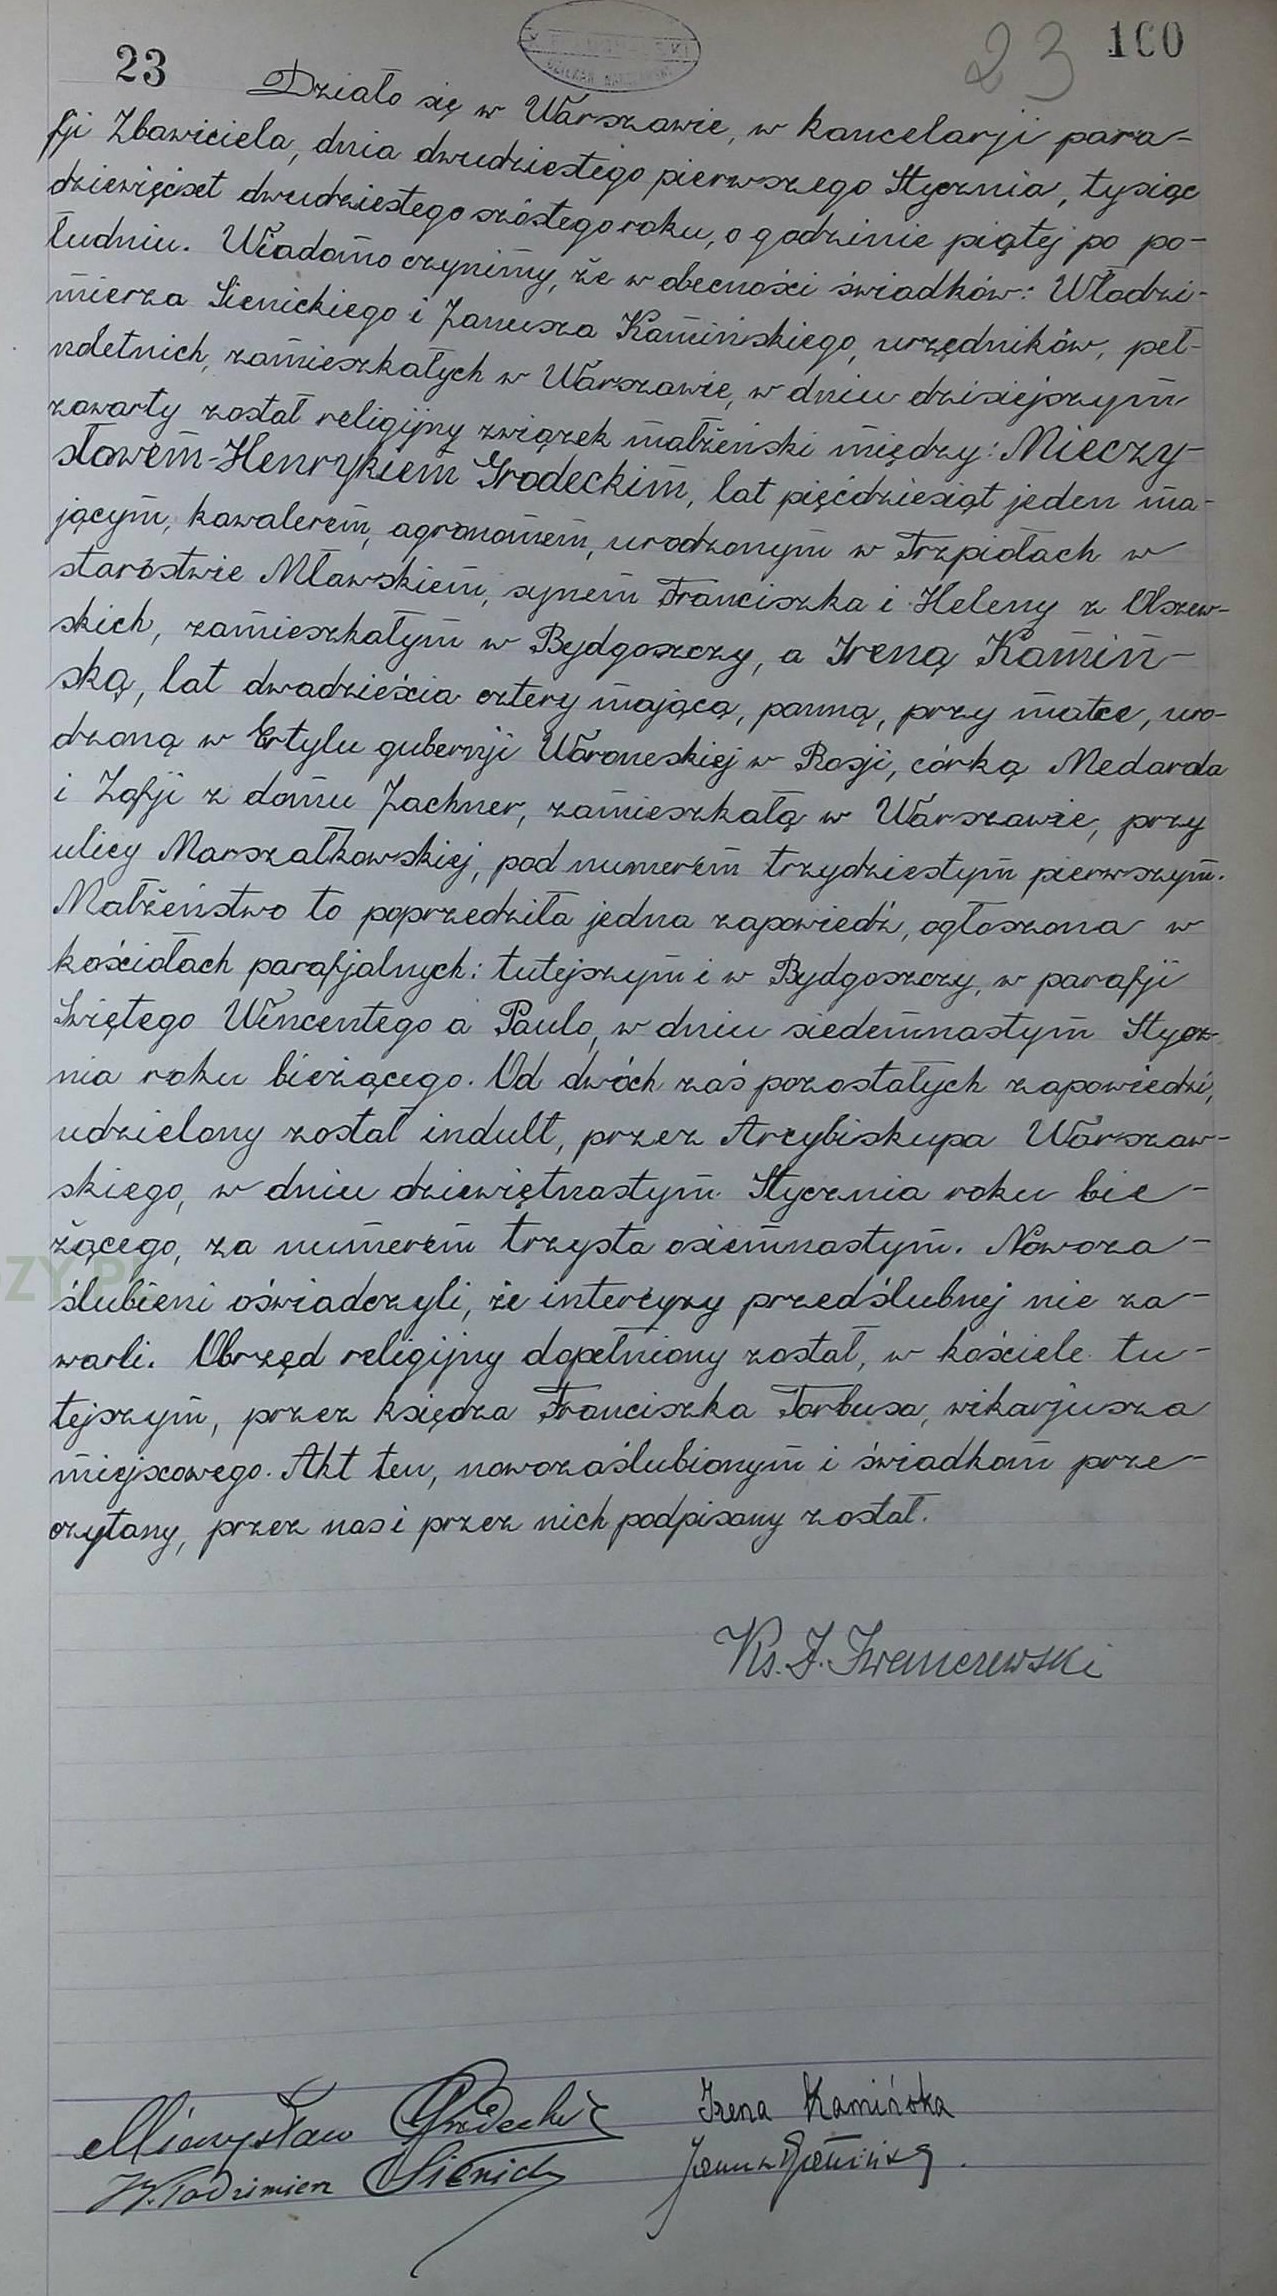 23
23
100
Działo się w Warszawie, w kancelarji para-
fji Zbawiciela, dnia dwudziestego pierwszego Stycznia, tysiąc
dziewięćset dwudziestego szóstego roku, o godzinie piątej po po-
łudniu. Wiadomo czynimy, że w obecności świadków: Włodzi-
mierza Sienickiego i Janusza Kamińskiego, urzędników, peł-
noletnich, zamieszkałych w Warszawie, w dniu dzisiejszym
zawarty został religijny związek małżeński między: Mieczy-
sławem-Henrykiem Grodeckim, lat pięćdziesiąt jeden ma-
jącym, kawalerem, agronomem, urodzonym w Trzpiołach w
starostwie Mławskiem, synem Franciszka i Heleny z Olszew-
skich, zamieszkałym w Bydgoszczy, a Ireną Kamiń-
ską, lat dwadzieścia cztery mającą, panną, przy matce, uro-
dzoną w Ertylu gubernji Woroneskiej w Rosji, córką Medarda
i Zofji z domu Jachner, zamieszkałą w Warszawie, przy
ulicy Marszałkowskiej, pod numerem trzydziestym pierwszym.
Małżeństwo to poprzedziła jedna zapowiedź, ogłoszona w
kościołach parafjalnych: tutejszym i w Bydgoszczy, w parafji
Świętego Wincentego à Paulo, w dniu siedemnastym Stycz-
nia roku bieżącego. Od dwóch zaś pozostałych zapowiedzi,
udzielony został indult, przez Arcybiskupa Warszaw-
skiego, w dniu dziewiętnastym Stycznia roku bie-
żącego, za numerem trzysta osiemnastym. Nowoza-
ślubieni oświadczyli, że intercyzy przedślubnej nie za-
warli. Obrzęd religijny dopełniony został, w kościele tu-
tejszym, przez księdza Franciszka Torbusa, wikarjusza
miejscowego. Akt ten, nowozaślubionym i świadkom prze-
czytany, przez nas i przez nich podpisany został.
Ks. J.
Mieczysław Grodecki
Irena Kamińska
Włodzimierz Sienicki
Janusz Kamiński